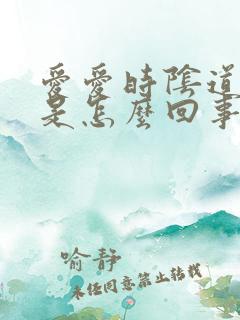 愛愛時陰道
是怎麼回事
喻靜
未经同意禁止转载